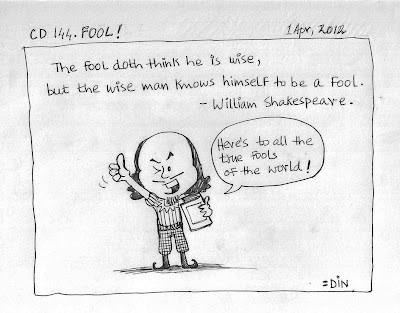 CD 144. FOOL! 1 Apr, 2012
The Fool doth think he is wise,
but the wise man knows himself to be a fool.
- William Shakespeare.
Here's to all the
true fools
of the world!
=DiN